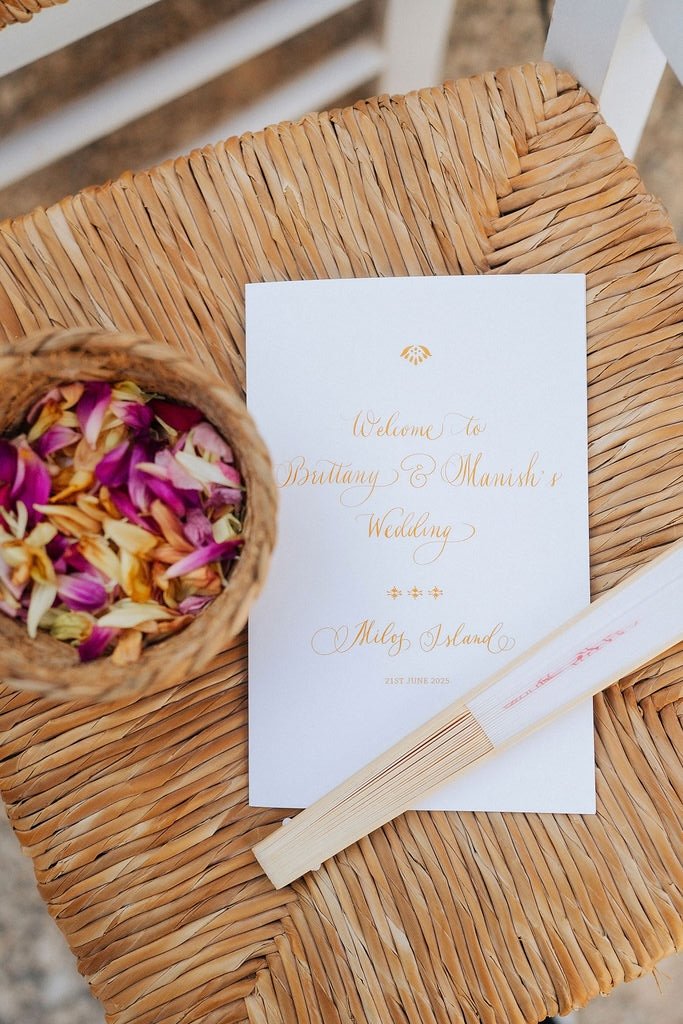 Welcome to
Brittany & Manish's
Wedding
Milos Island
21ST JUNE 2025